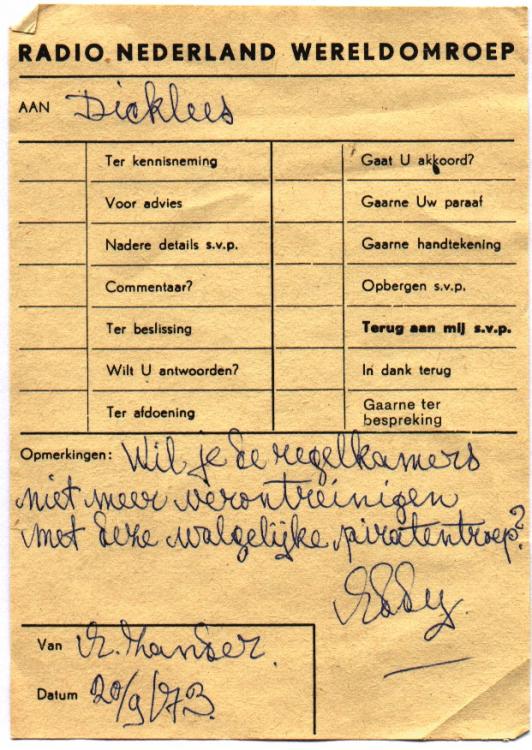 RADIO NEDERLAND WERELDOMROEP
AAN Dicklees
Ter kennisneming
Gaat U akkoord?
Voor advies
Gaarne Uw paraaf
Nadere details s.v.p.
Gaarne handtekening
Commentaar?
Opbergen s.v.p.
Ter beslissing
Terug aan mij s.v.p.
Wilt U antwoorden?
In dank terug
Ter afdoening
Gaarne ter
bespreking
Opmerkingen: Wil je de regelkamers
niet meer verontreinigen
met deze walgelijke piratentroep?
Eddy
Van
Datum 20/9/73